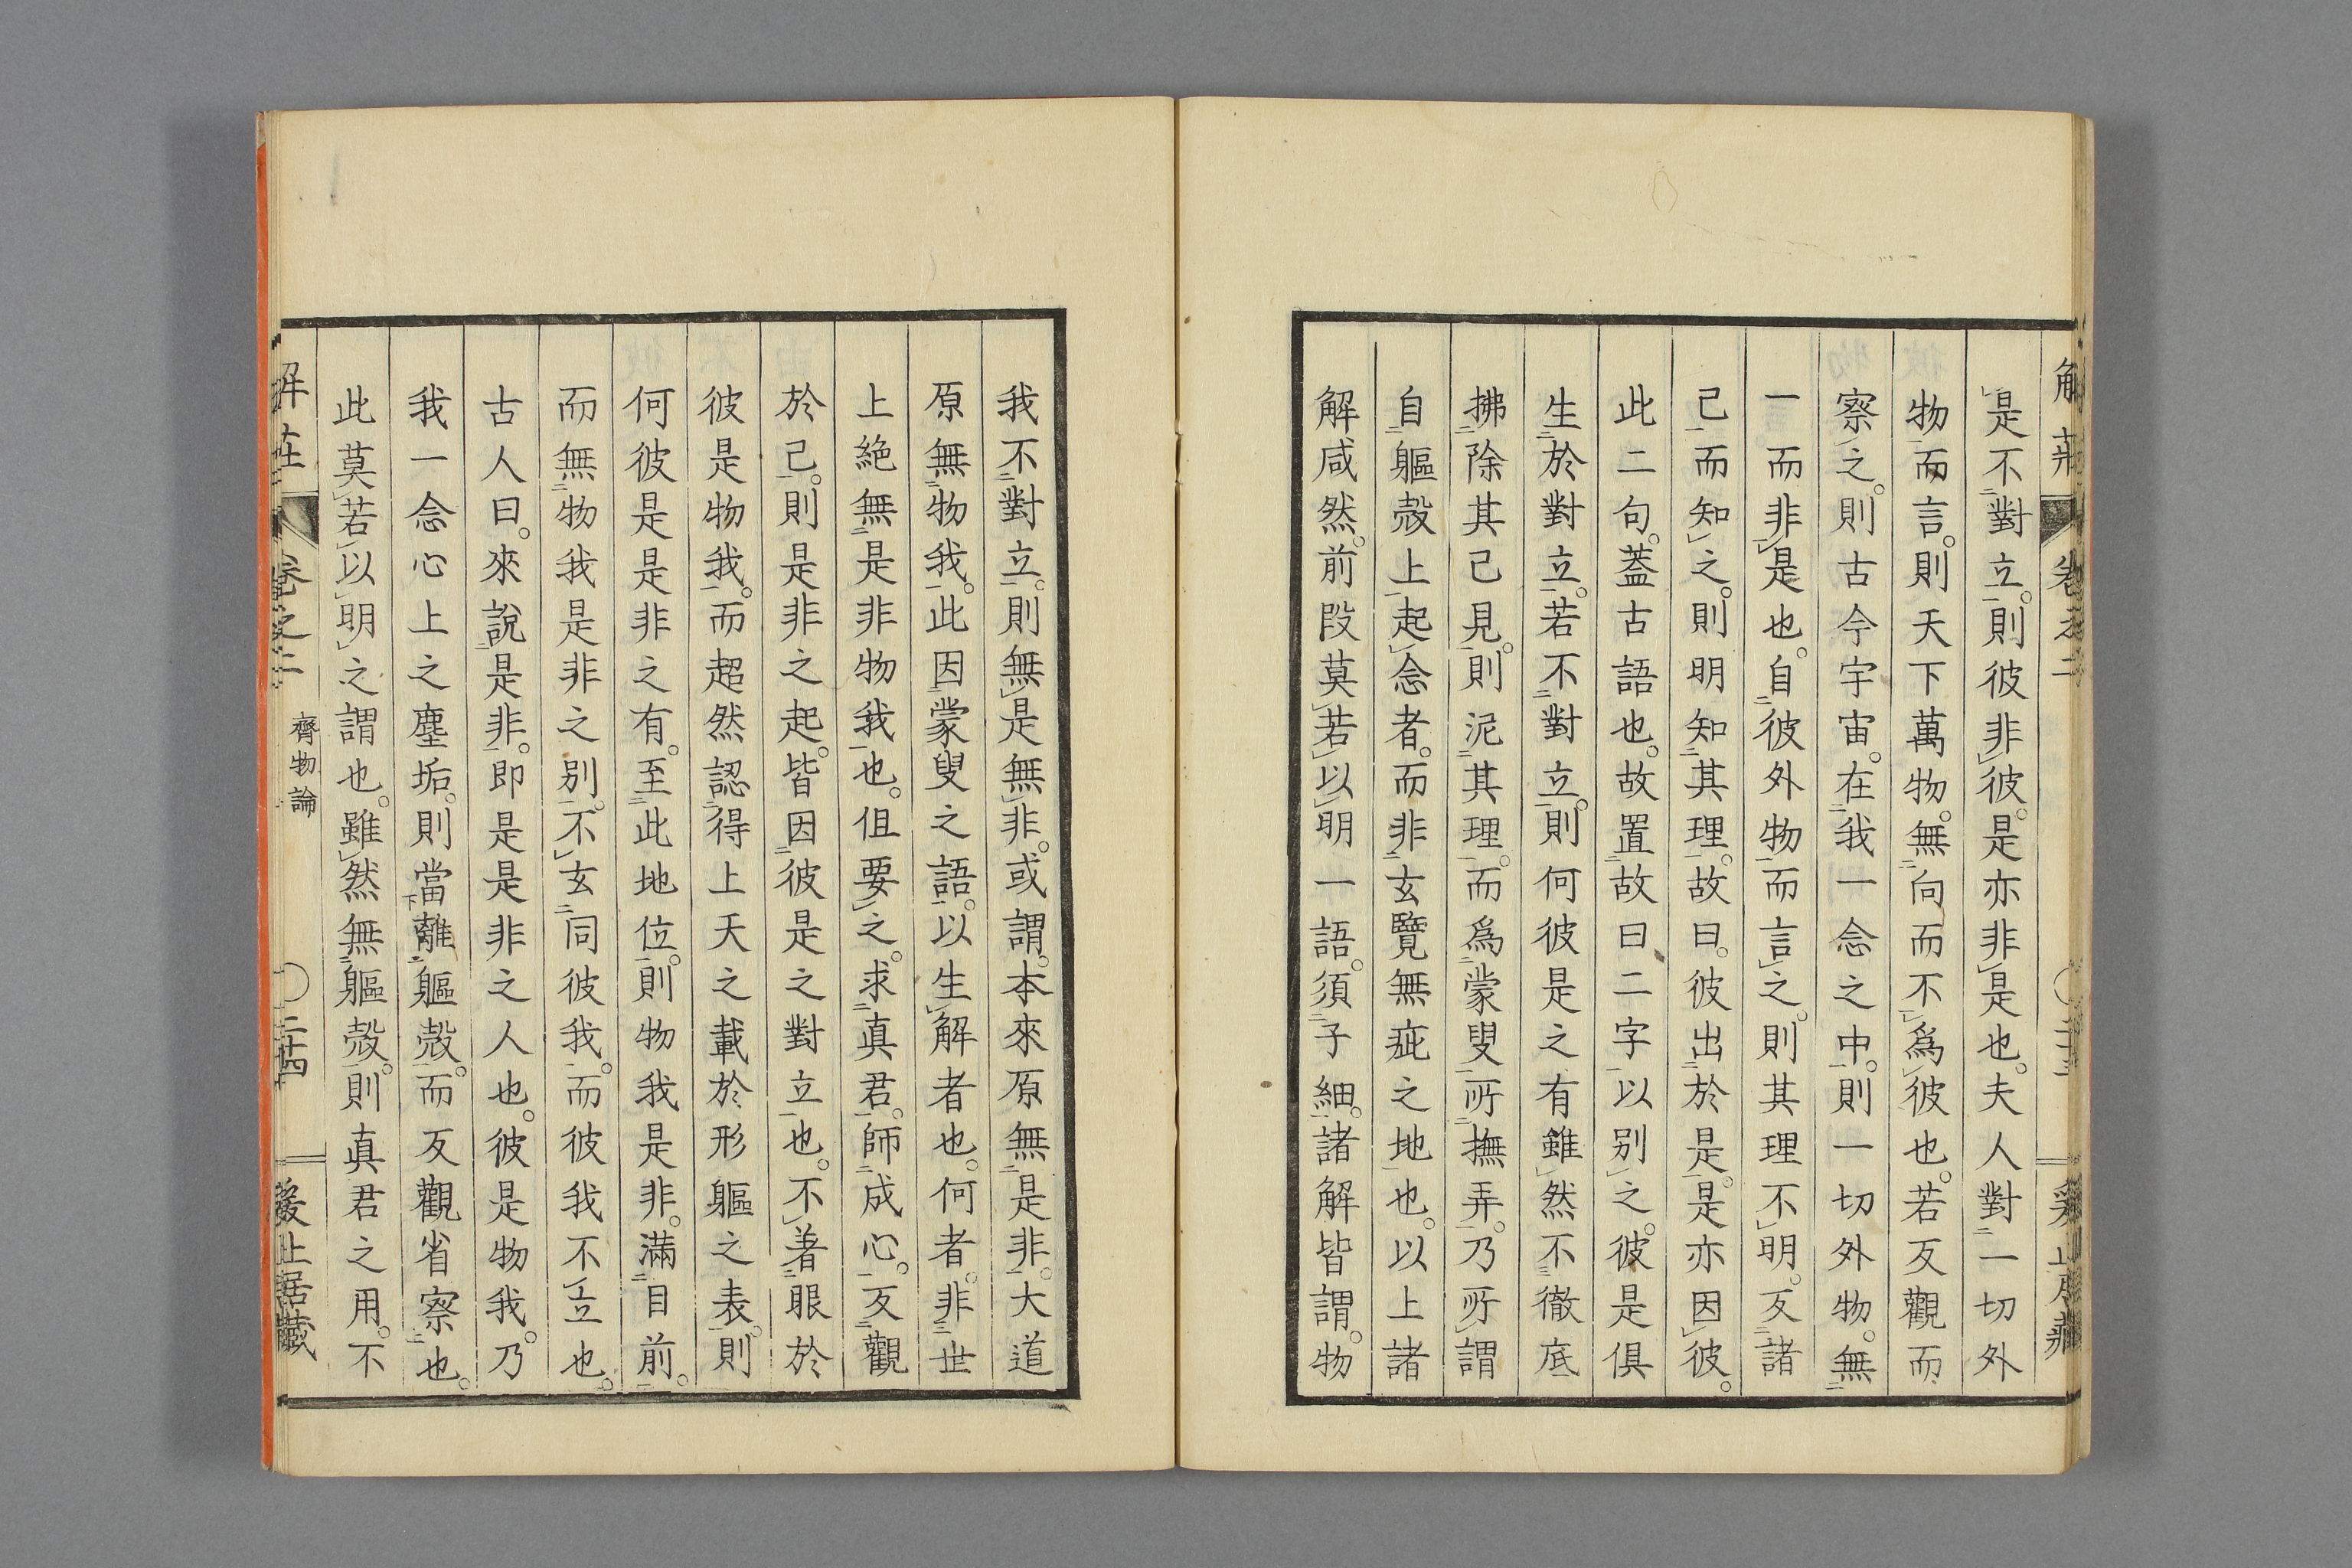 是不對立。則彼非彼。是亦非是也。夫人對一切外
物而言。則天下萬物。無向而不爲彼也。若反觀而
察之。則古今宇宙。在我一念之中。則一切外物。無
一而非是也。自彼外物而言之。則其理不明。反諸
己而知之。則明知其理。故曰。彼出於是。是亦因彼。
此二句。蓋古語也。故置故曰二字以别之。彼是俱
生於對立。若不對立。則何彼是之有雖然不徹底
拂除其己見。則泥其理。而爲蒙叟所撫弄。乃所謂
自軀殼上起念者。而非玄覽無疵之地也。以上諸
解咸然。前段莫若以明一語。須子細。諸解皆謂。物
我不對立。則無是無非。或謂。本來原無是非。大道
原無物我。此因蒙叟之語。以生解者也。何者。非世
上絶無是非物我也。但要之。求真君。師成心。反觀
於己。則是非之起。皆因彼是之對立也。不著眼於
彼是物我。而超然認得上天之載於形軀之表。則
何彼是是非之有。至此地位。則物我是非。滿目前。
而無物我是非之别。不玄同彼我。而彼我不立也。
古人曰。來說是非。即是是非之人也。彼是物我。乃
我一念心上之塵垢。則當離軀殼。而反觀省察也。
此莫若以明之謂也。雖然無軀殼。則真君之用。不
解莊
卷之二
齊物論
二十四